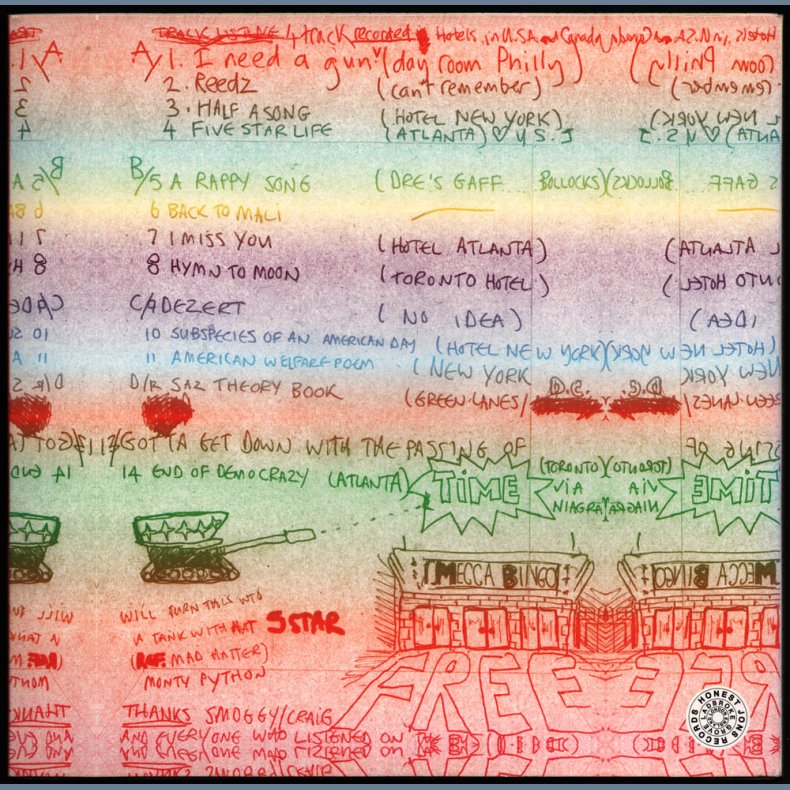 TRACK LISTING 4 track recorded Hotels in U.S.A and Canada
A/1. I need a gun (day room Philly)
2. Reedz (can't remember)
3. HALF A SONG (HOTEL NEW YORK)
4 FIVE STAR LIFE (ATLANTA) ♡ U.S.
B/5 A RAPPY SONG (DRE'S GAFF BOLLOCKS)
6 BACK TO MALI
7 I MISS YOU (HOTEL ATLANTA)
8 HYMN TO MOON (TORONTO HOTEL)
C/9 DEZERT (NO IDEA)
10 SUBSPECIES OF AN AMERICAN DAY (HOTEL NEW YORK)
11 AMERICAN WELFARE POEM (NEW YORK
D/12 SAZ THEORY BOOK (GREEN LANES/
D.C.
13 GOT TA GET DOWN WITH THE PASSING OF
14 END OF DEMOCRAZY (ATLANTA) TIME (TORONTO)
VIA
NIAGRA
MECCA BINGO
WILL TURN THIS INTO
A TANK WITH HAT 5 STAR
(REF. MAD HATTER)
MONTY PYTHON
FREE
THANKS SMOGGY/CRAIG
AND EVERYONE WHO LISTENED ON
HONEST JONS RECORDS
LADBROKE GROVE
LONDON